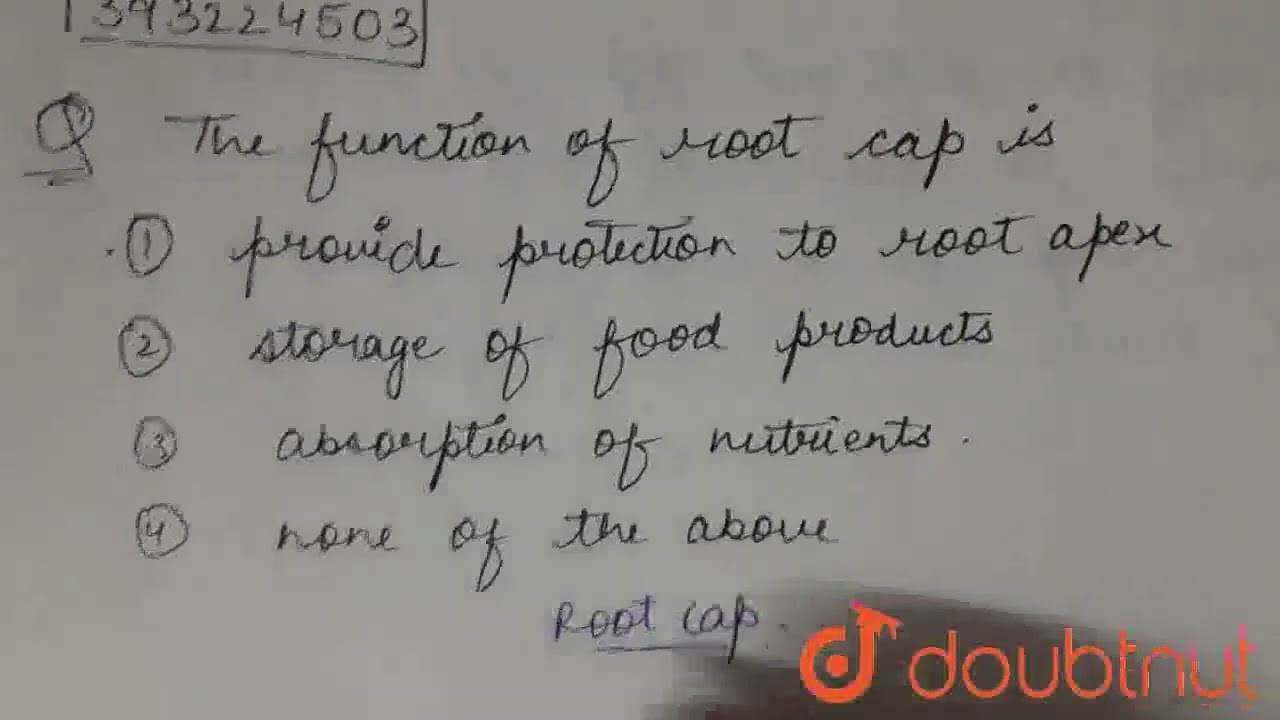 1393224503
Q The function of root cap is
① provide protection to root apex
② storage of food products
③ absorption of nutrients.
④ none of the above
Root cap.
doubtnut